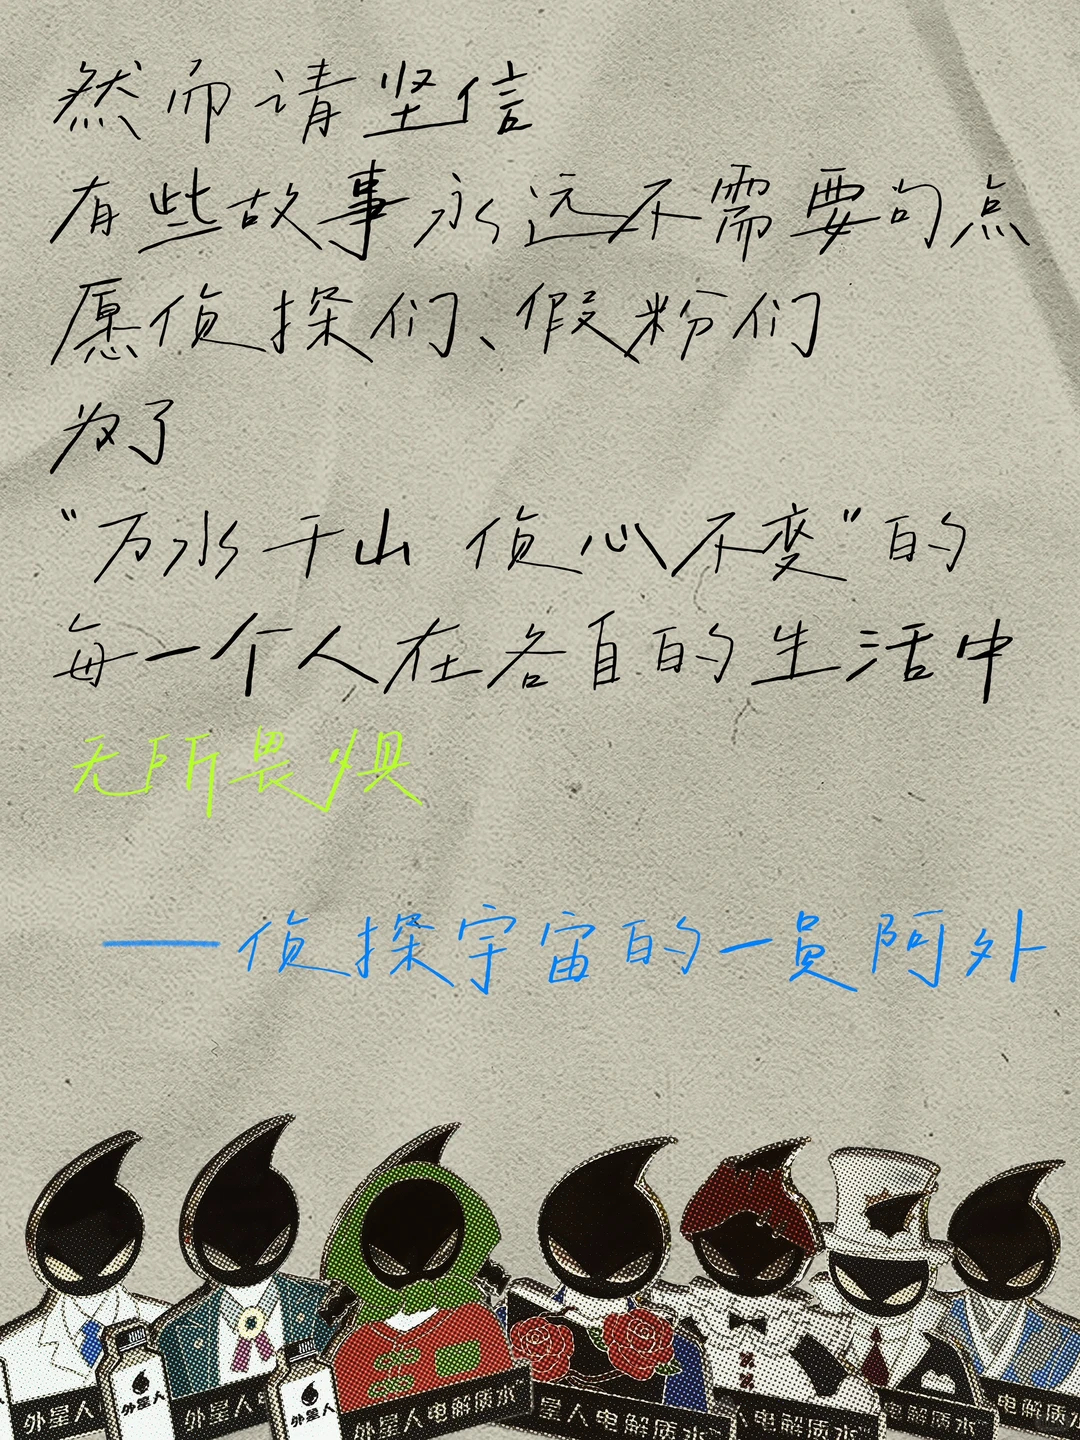 然而请坚信
有些故事永远不需要句点
愿侦探们、假粉们
为了
“万水千山 侦心不变”的
每一个人在各自的生活中
无所畏惧
——侦探宇宙的一员阿外
外星人
外星人
外星人电
外星人
外星人电解质水
星人电解质水
人电解质水
电解质水
电解质水